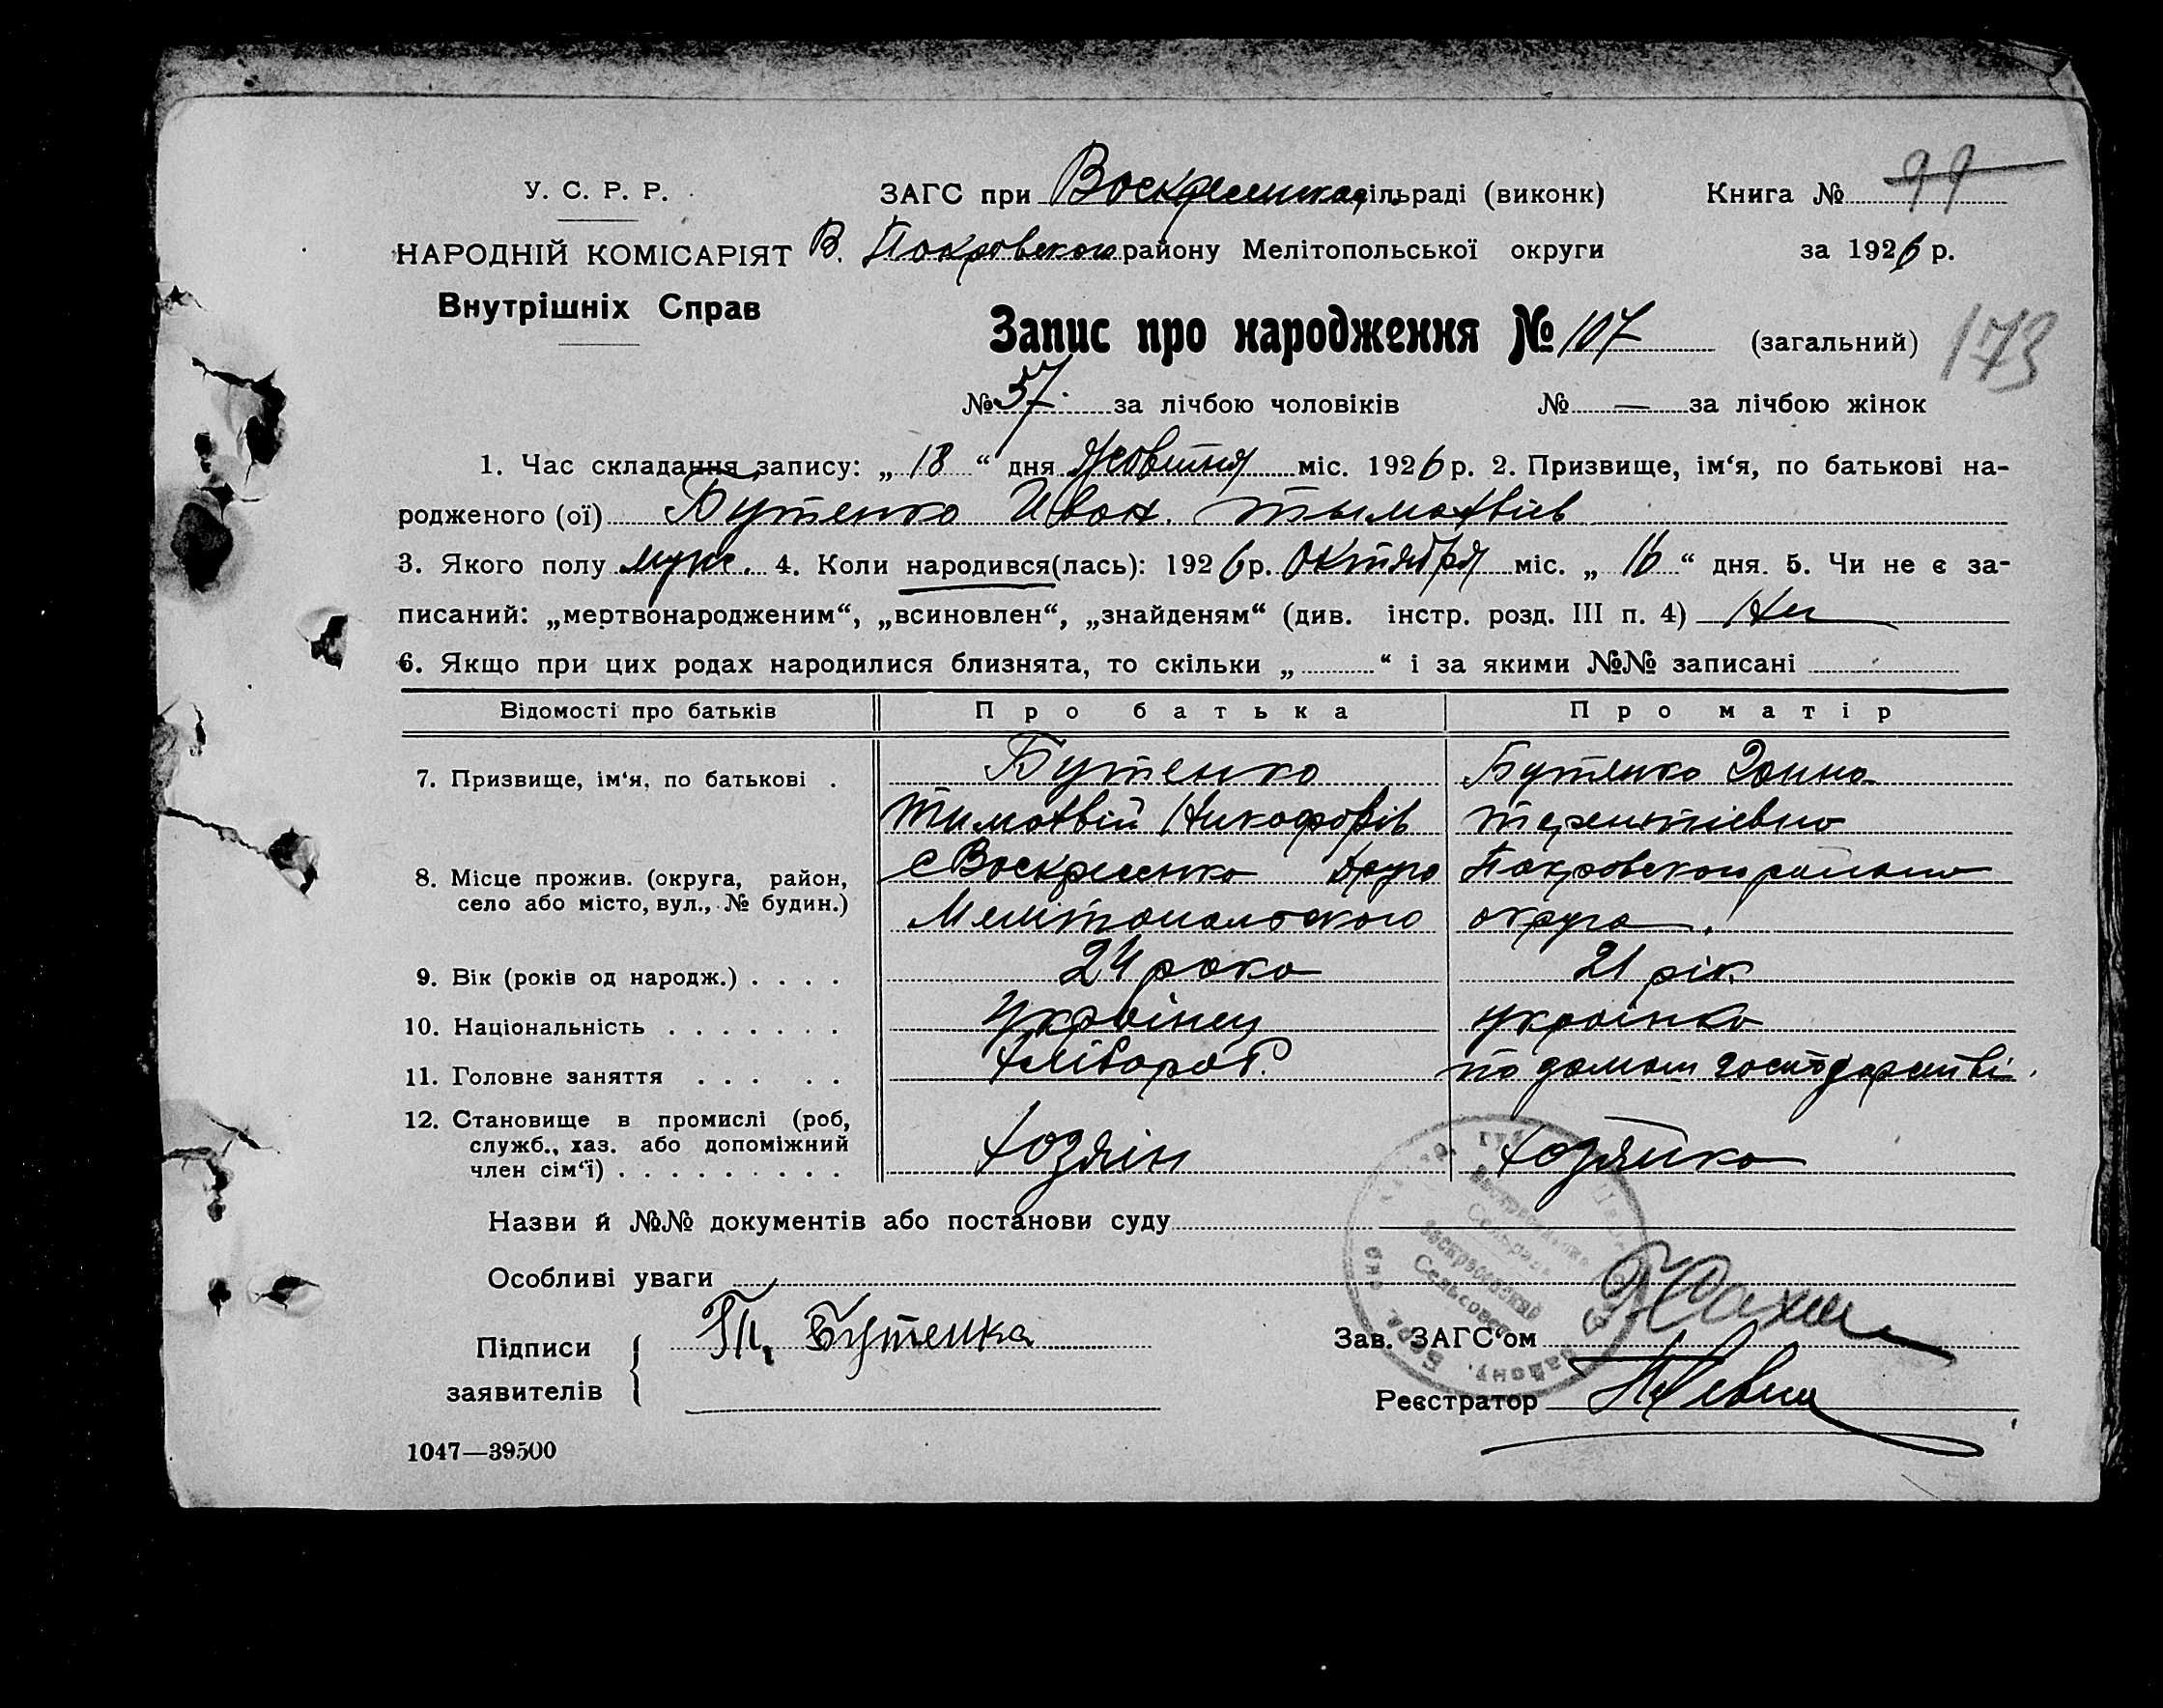 У. С. Р. Р.
ЗАГС при Воскресенка сільраді (виконк)
Книга № 99
НАРОДНІЙ КОМІСАРІЯТ
В. Покровского району Мелітопольської округи
за 1926 р.
Внутрішніх Справ
Запис про народження № 107 (загальний)
173
№ 57 за лічбою чоловіків № — за лічбою жінок
1. Час складання запису: „ 18 “ дня Жовтня міс. 1926 р. 2. Призвище, ім‘я, по батькові на-
родженого (ої) Бутенко Иван. Тымофвіев
3. Якого полу муж. 4. Коли народився(лась): 1926 р. Октября міс. „ 16 “ дня. 5. Чи не є за-
писаний: „мертвонародженим“, „всиновлен“, „знайденям“ (див. інстр. розд. III п. 4) Ни
6. Якщо при цих родах народилися близнята, то скільки „ “ і за якими №№ записані
Відомості про батьків Про батька Про матір
7. Призвище, ім‘я, по батькові .
Бутенко
Тимофвій Никофорів
Бутенко Ганна
Терентіевна
8. Місце прожив. (округа, район,
село або місто, вул., № будин.)
с Воскресенка
Мелітопольского
Покровского району
округа.
9. Вік (років од народж.) . . . . 24 рока 21 рік
10. Національність . . . . . . . Українец українка
11. Головне заняття . . . . . Хлібороб. по домаш господарстві.
12. Становище в промислі (роб,
служб., хаз. або допоміжний
член сім‘ї) . . . . . . . . . Хозяін Хозяйка
Назви й №№ документів або постанови суду
Особливі уваги
Воскресенский
Сельсовет
Підписи
заявителів
Бутенка
Зав. ЗАГС‘ом
Реєстратор
1047—39500